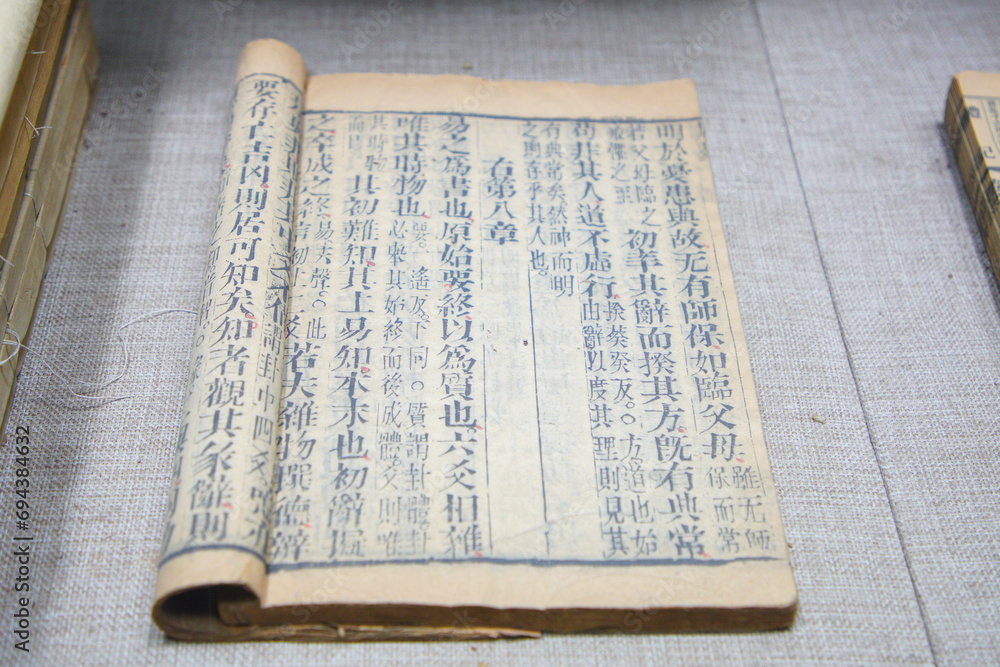 明於憂患與故无有師保如臨父母雖无師
保而常
若父母臨之
戒懼之至初率其辭而揆其方旣有典常
苟非其人道不虛行揆葵癸反○方道也始
由辭以度其理則見其
有典常矣然神而明
之則存乎其人也
右第八章
易之爲書也原始要終以爲質也六爻相雜
唯其時物也要一遙反下同○質謂卦體卦
必舉其始終而後成體爻則唯
其時物
而已其初難知其上易知本末也初辭擬
之卒成之終易去聲○此
言初上二爻若夫雜物撰德辯
不備謂卦中四爻噫亦
要存亡吉凶則居可知矣知者觀其彖辭則
Adobe Stock | #694384632